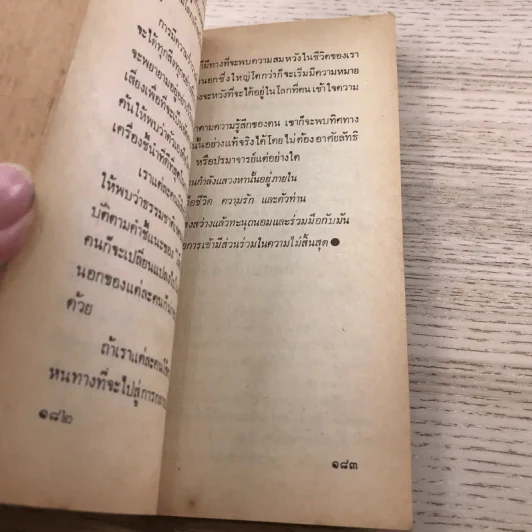 การมีความ
จะได้ทุกสิ่งทุก
จะพยายามอยู่อย่าง
เลี่ยงเพื่อที่จะเป็น
ค้นให้พบว่าตัว
เครื่องชี้นำที่ดีที่สุด
เราแต่ละคน
ให้พบว่าธรรมชาติ
บัติตามคำชี้แนะของ
คนก็จะเปลี่ยนแปลง
นอกของแต่ละคนก็
ด้วย
ถ้าเราแต่ละคน
หนทางที่จะไปสู่การ
๑๘๒
ก็มีทางที่จะพบความสมหวังในชีวิตของเรา
นอกซึ่งใหญ่โตกว่าก็จะเริ่มมีความหมาย
จะหวังที่จะได้อยู่ในโลกที่คน เข้าใจความ
ตามความรู้สึกของตน เขาก็จะพบทิศทาง
นั้นอย่างแท้จริงได้โดยไม่ต้องอาศัยลัทธิ
หรือปรมาจารย์แต่อย่างใด
กำลังแสวงหานั้นอยู่ภายใน
ชีวิต ความรัก และตัวท่าน
สว่างแล้วทะนุถนอมและร่วมมือกับมัน
การเข้ามีส่วนร่วมในความไม่สิ้นสุด ●
๑๘๓